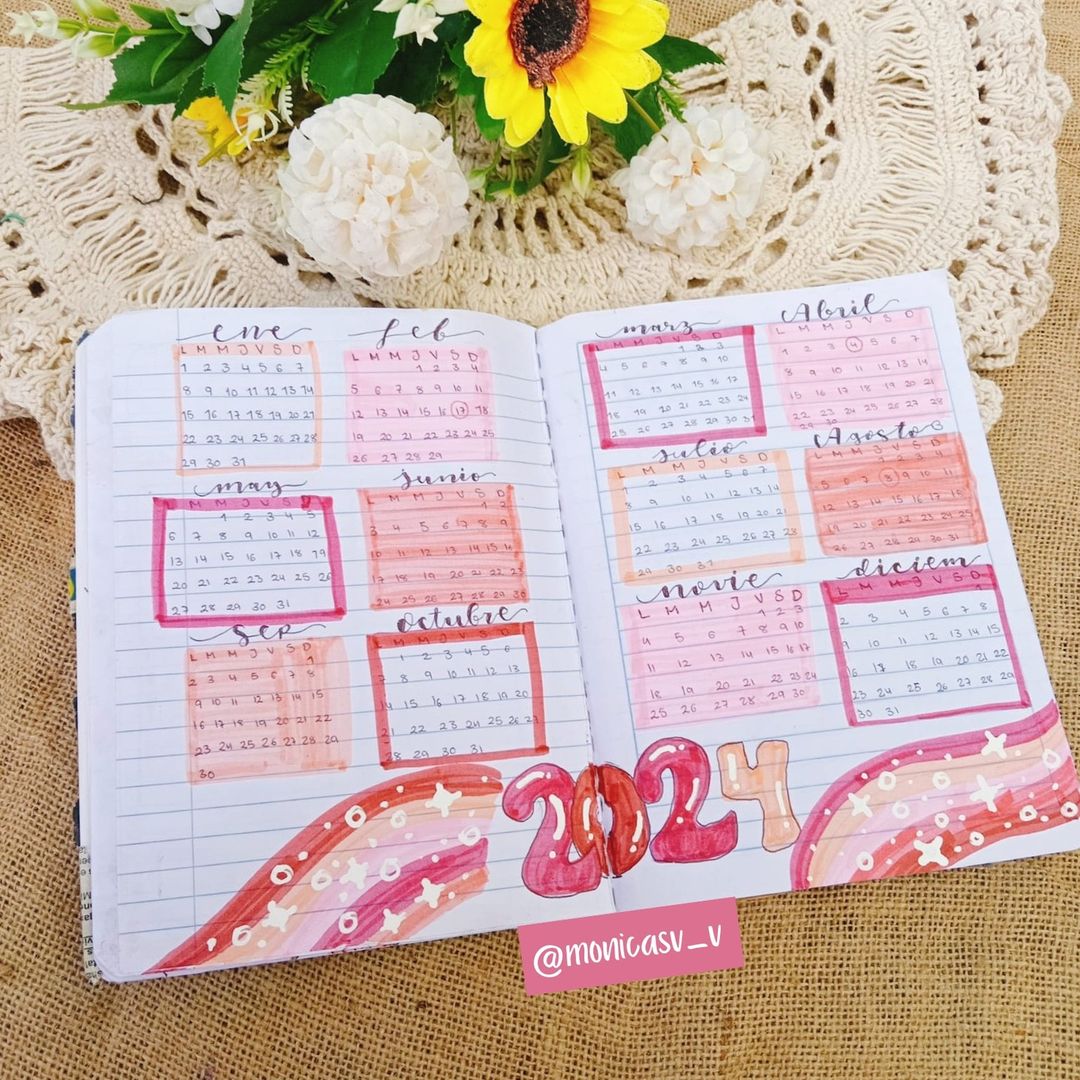 ene
L M M J V S D
1 2 3 4 5 6 7
8 9 10 11 12 13 14
15 16 17 18 19 20 21
22 23 24 25 26 27 28
29 30 31
feb
L M M J V S D
1 2 3 4
5 6 7 8 9 10 11
12 13 14 15 16 17 18
19 20 21 22 23 24 25
26 27 28 29
may
L M M J V S D
1 2 3 4 5
6 7 8 9 10 11 12
13 14 15 16 17 18 19
20 21 22 23 24 25 26
27 28 29 30 31
junio
L M M J V S D
1 2
3 4 5 6 7 8 9
10 11 12 13 14 15 16
17 18 19 20 21 22 23
24 25 26 27 28 29 30
sep
L M M J V S D
1
2 3 4 5 6 7 8
9 10 11 12 13 14 15
16 17 18 19 20 21 22
23 24 25 26 27 28 29
30
octubre
L M M J V S D
1 2 3 4 5 6
7 8 9 10 11 12 13
14 15 16 17 18 19 20
21 22 23 24 25 26 27
28 29 30 31
marz
L M M J V S D
1 2 3
4 5 6 7 8 9 10
11 12 13 14 15 16 17
18 19 20 21 22 23 24
25 26 27 28 29 30 31
Abril
L M M J V S D
1 2 3 4 5 6 7
8 9 10 11 12 13 14
15 16 17 18 19 20 21
22 23 24 25 26 27 28
29 30
julio
L M M J V S D
1 2 3 4 5 6 7
8 9 10 11 12 13 14
15 16 17 18 19 20 21
22 23 24 25 26 27 28
29 30 31
Agosto
L M M J V S D
1 2 3 4
5 6 7 8 9 10 11
12 13 14 15 16 17 18
19 20 21 22 23 24 25
26 27 28 29 30 31
novie
L M M J V S D
1 2 3
4 5 6 7 8 9 10
11 12 13 14 15 16 17
18 19 20 21 22 23 24
25 26 27 28 29 30
diciem
L M M J V S D
1
2 3 4 5 6 7 8
9 10 11 12 13 14 15
16 17 18 19 20 21 22
23 24 25 26 27 28 29
30 31
2024
@monicasv_v